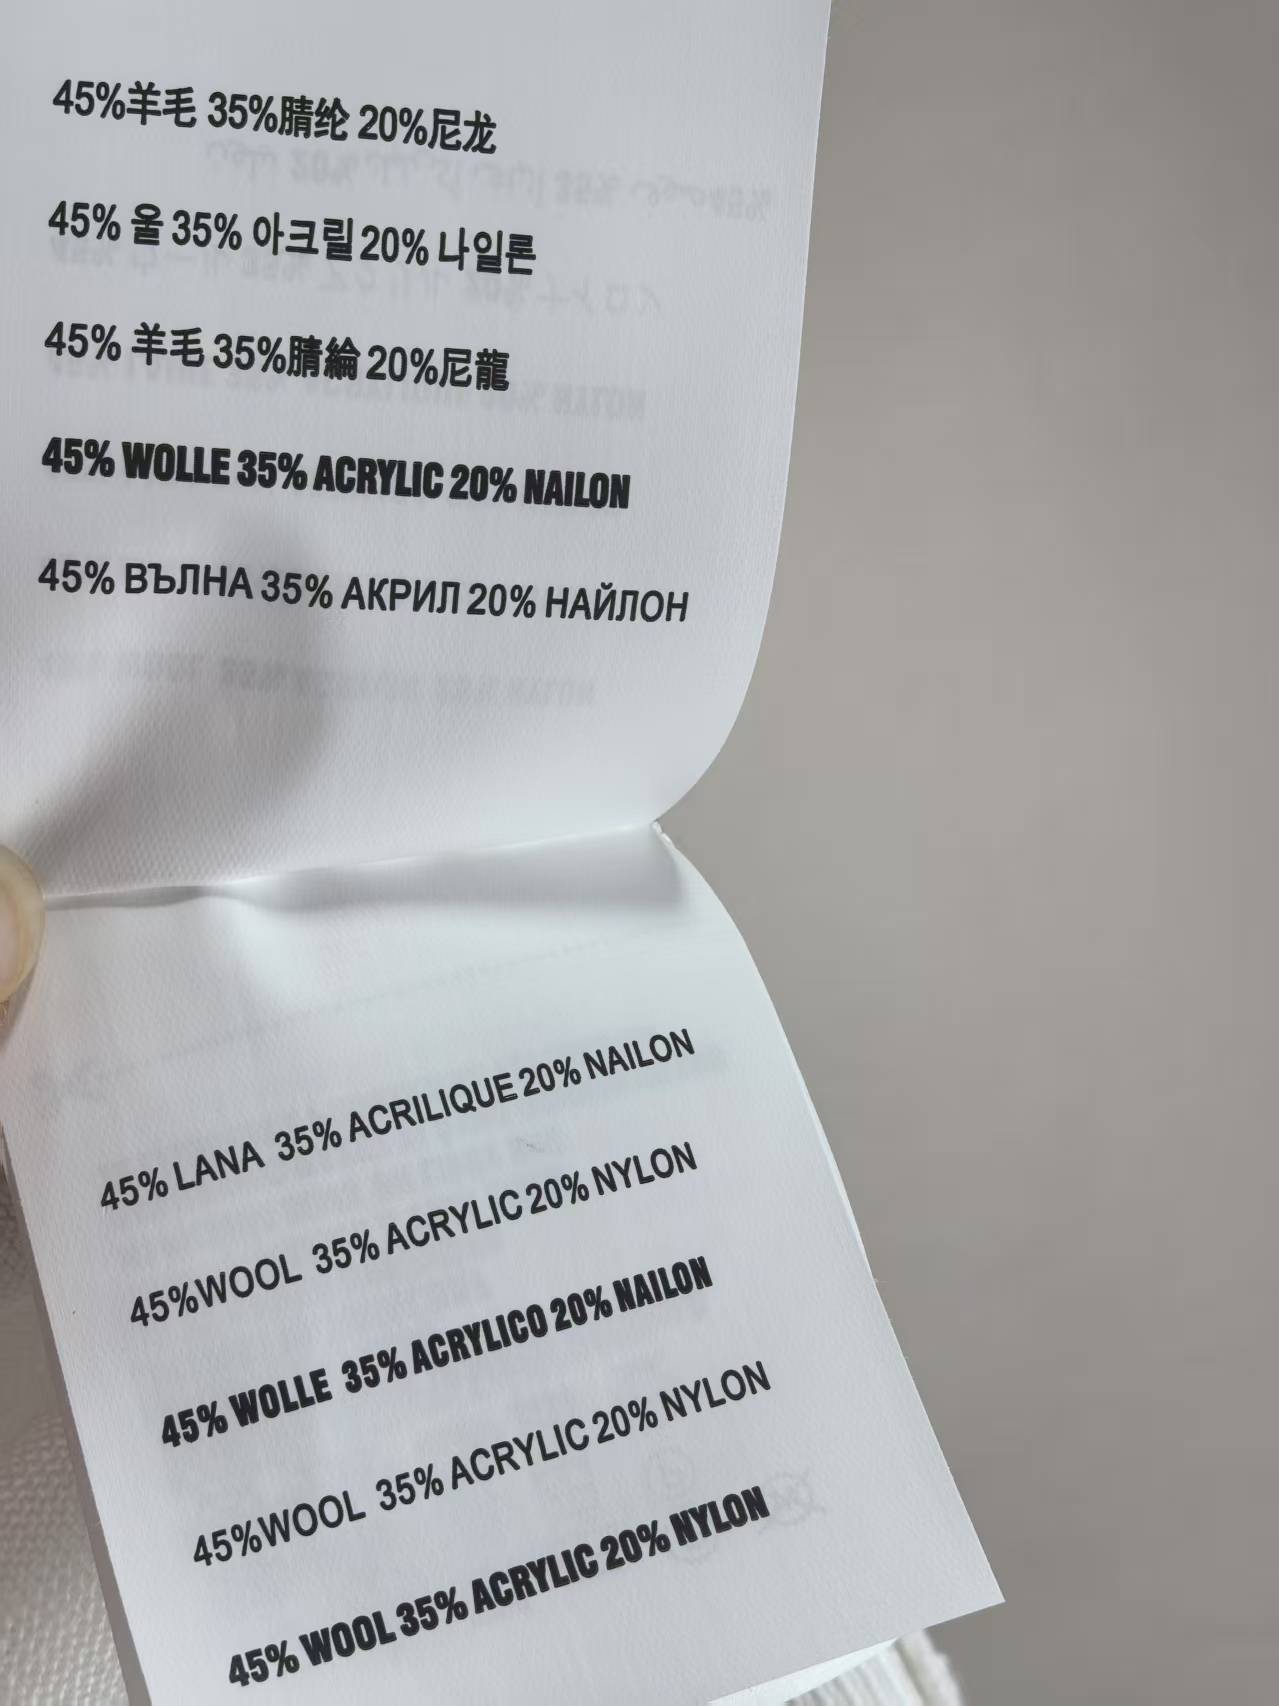 45%羊毛 35%腈纶 20%尼龙
45% 울 35% 아크릴 20% 나일론
45% 羊毛 35%腈綸 20%尼龍
45% WOLLE 35% ACRYLIC 20% NAILON
45% ВЪЛНА 35% АКРИЛ 20% НАЙЛОН
45% LANA 35% ACRILIQUE 20% NAILON
45%WOOL 35% ACRYLIC 20% NYLON
45% WOLLE 35% ACRYLICO 20% NAILON
45%WOOL 35% ACRYLIC 20% NYLON
45% WOOL 35% ACRYLIC 20% NYLON